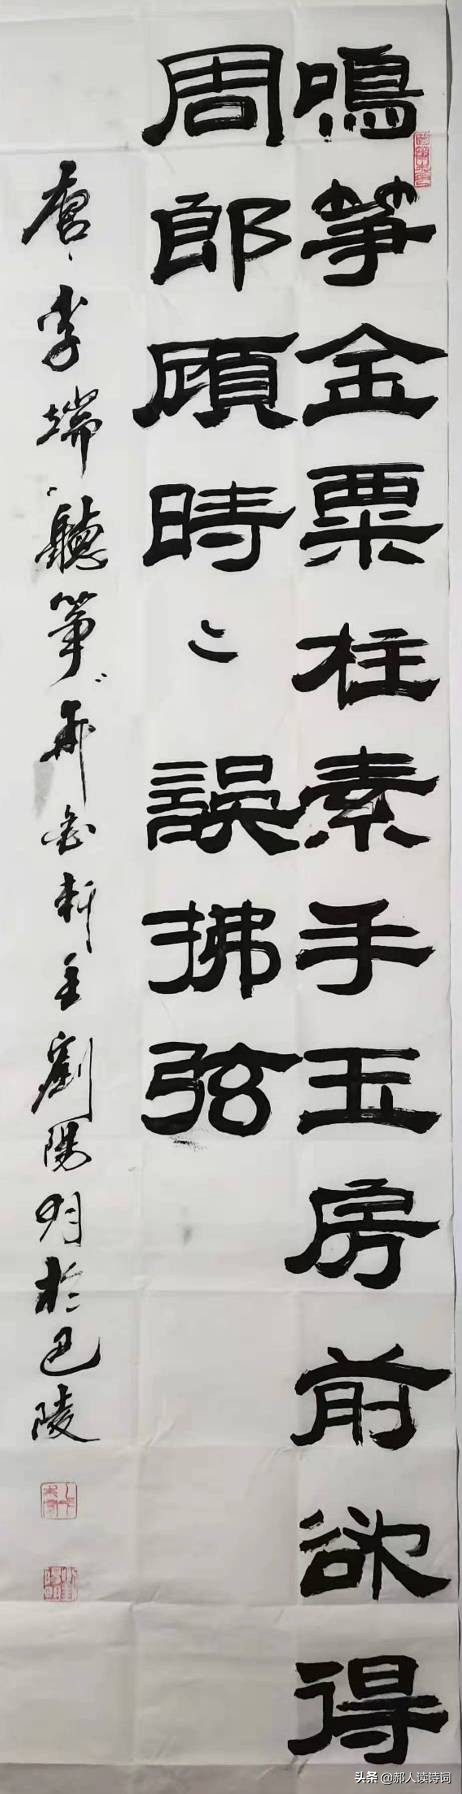 鳴筝金粟柱素手玉房前欲得
周郎顧時〻誤拂弦
唐李端聽筝軒主劉陽明於巴陵
头条 @郝人读诗词